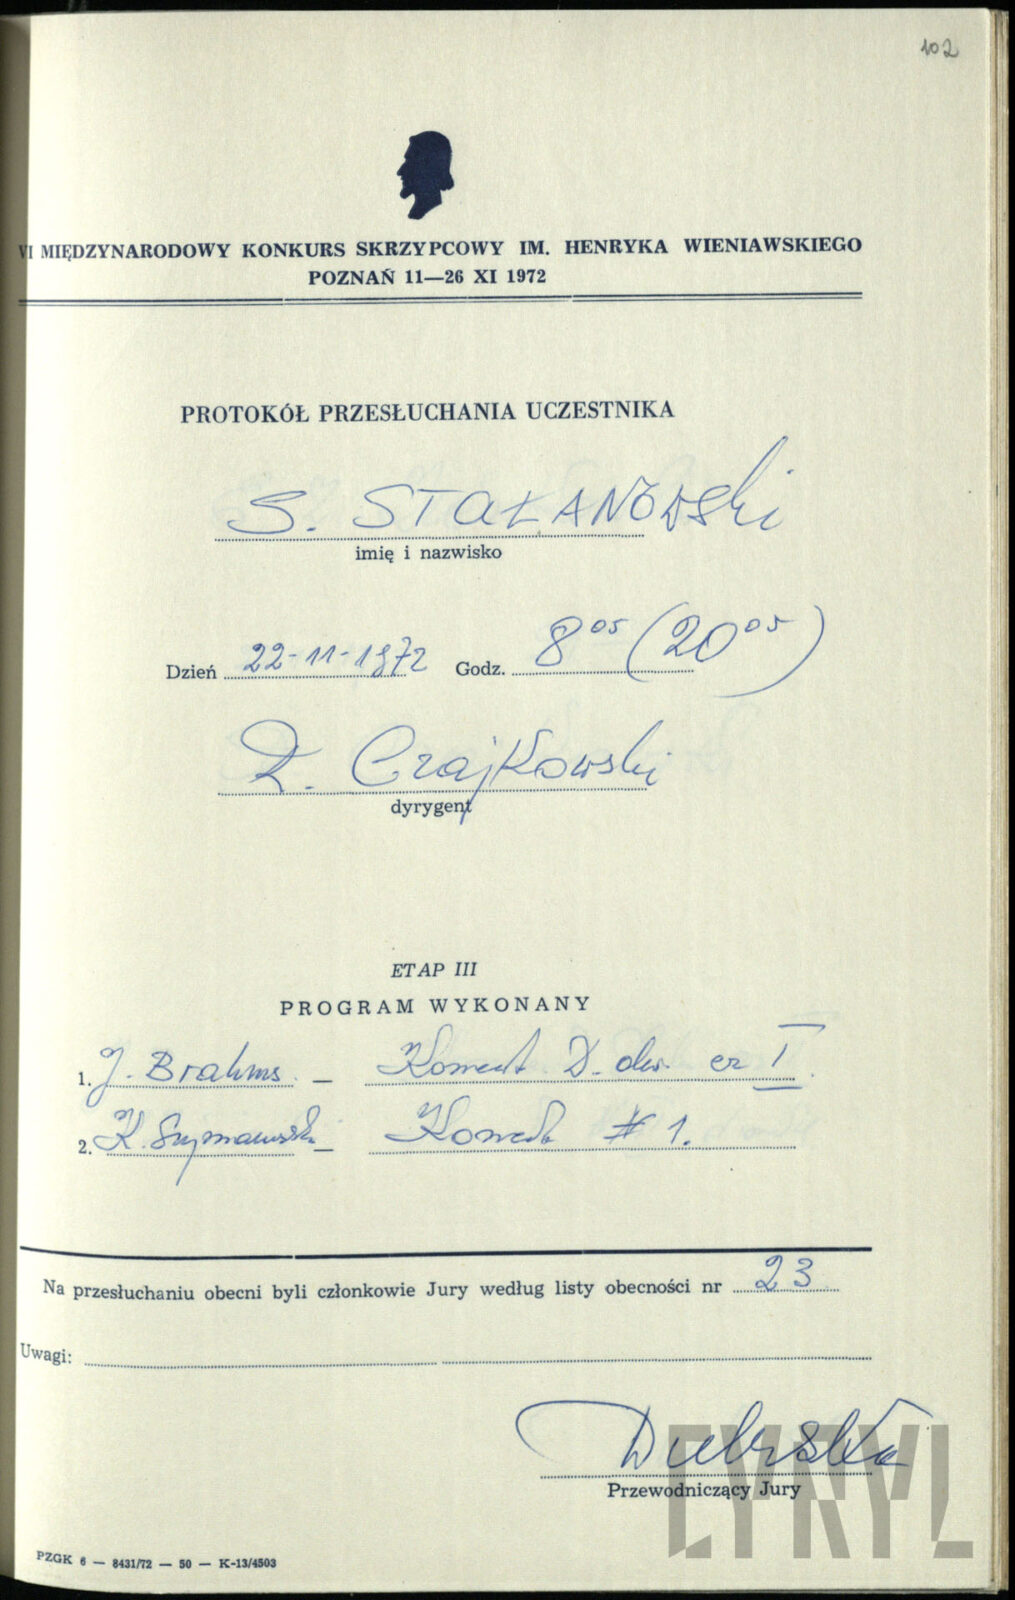 102
VI MIĘDZYNARODOWY KONKURS SKRZYPCOWY IM. HENRYKA WIENIAWSKIEGO
POZNAŃ 11—26 XI 1972
PROTOKÓŁ PRZESŁUCHANIA UCZESTNIKA
S. STAŁANOWSKI
imię i nazwisko
Dzień 22-11-1972 Godz. 8⁰⁵ (20⁰⁵)
R. Czajkowski
dyrygent
ETAP III
PROGRAM WYKONANY
1. J. Brahms — Koncert D-dur cz I
2. K. Szymanowski — Koncert # 1.
Na przesłuchaniu obecni byli członkowie Jury według listy obecności nr 23
Uwagi:
Dubiska
Przewodniczący Jury
CYRYL
PZGK 6 — 8431/72 — 50 — K-13/4503